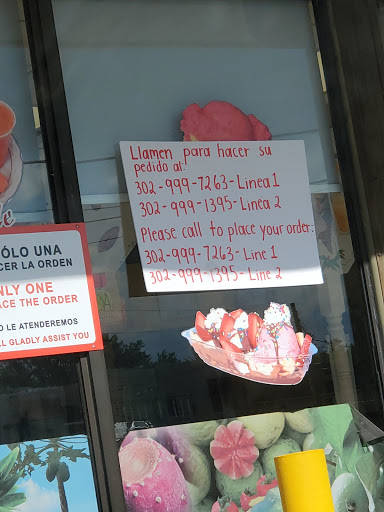 Llamen para hacer su
pedido al:
302-999-7263-Linea 1
302-999-1395-Linea 2
Please call to place your order:
302-999-7263-Line 1
302-999-1395-Line 2
SÓLO UNA
LA ORDEN
ONLY ONE
THE ORDER
LE ATENDEREMOS
GLADLY ASSIST YOU